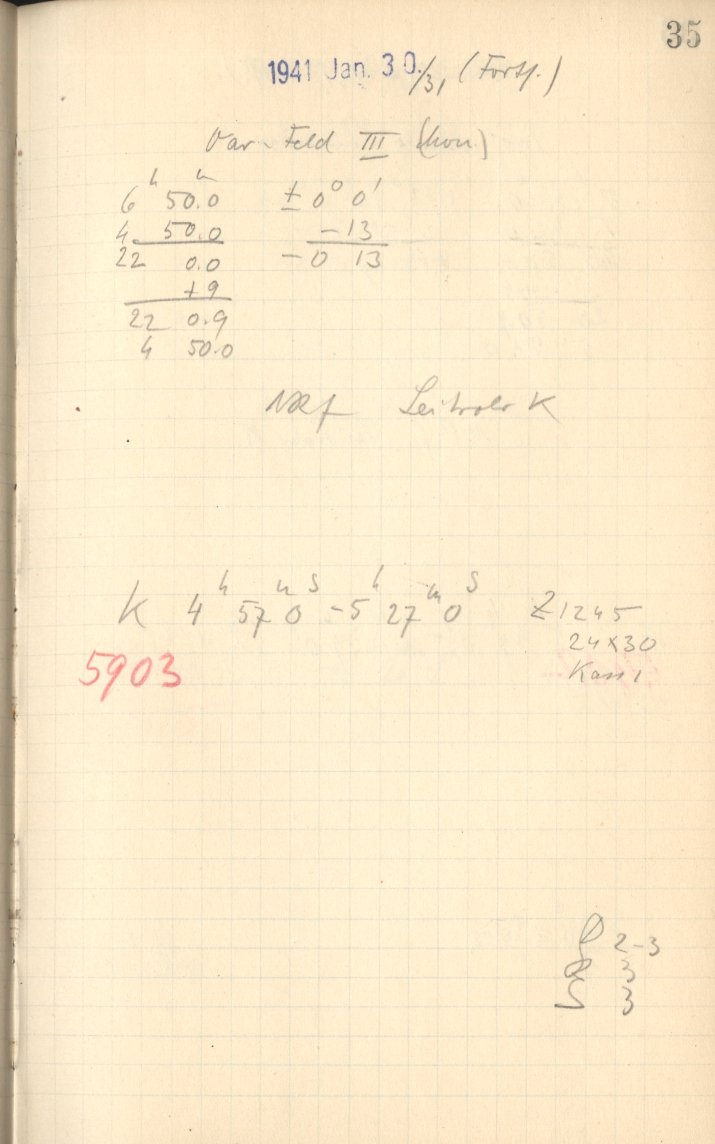 35
1941 Jan. 30./31 (Forts.)
Var. Feld III (Mon.)
6ʰ 50.0ᵐ ± 0° 0'
4 50.0 - 13
22 0.0 - 0 13
+9
22 0.9
4 50.0
Leitrohr K
K 4ʰ 57ᵐ 0ˢ - 5ʰ 27ᵐ 0ˢ Z1245
5903 24x30
Kass 1
2-3
3
3